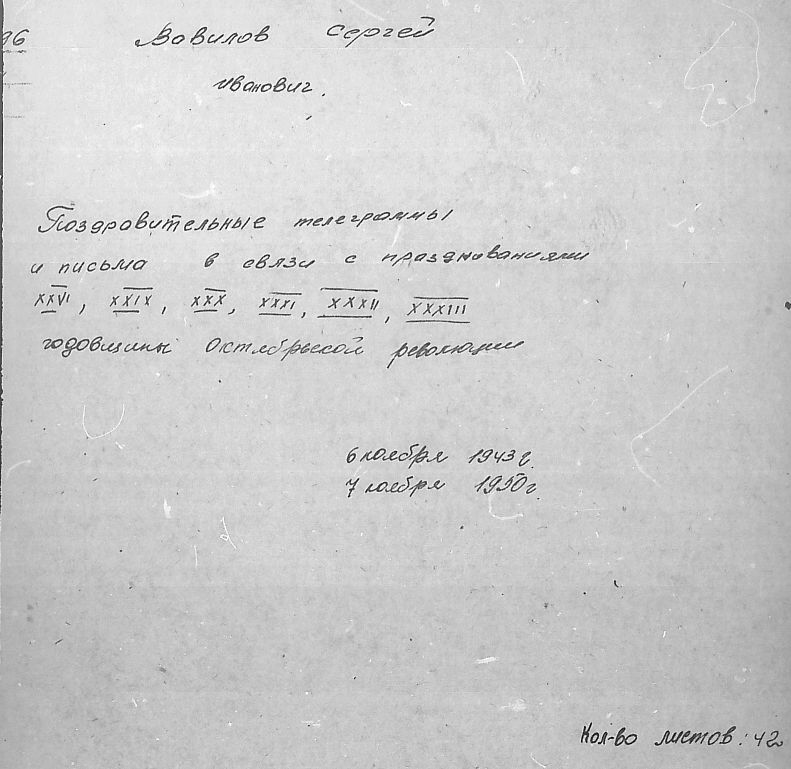 96
Вавилов Сергей
Иванович.
Поздравительные телеграммы
и письма в связи с празднованиями
XXVI, XXIX, XXX, XXXI, XXXII, XXXIII
годовщины Октябрьской революции
6 ноября 1943 г.
7 ноября 1950 г.
Кол-во листов: 42